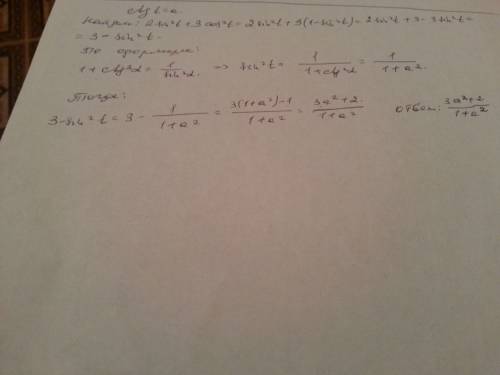 ctg t = a.
Найти: 2 sin²t + 3 cos²t = 2 sin²t + 3(1-sin²t) = 2 sin²t + 3 - 3 sin²t =
= 3 - sin²t.
По формуле:
1 + ctg²α = 1/sin²α. => sin²t = 1/(1+ctg²α) = 1/(1+a²).
Тогда:
3 - sin²t = 3 - 1/(1+a²) = (3(1+a²)-1)/(1+a²) = (3a²+2)/(1+a²) ответ: (3a²+2)/(1+a²)